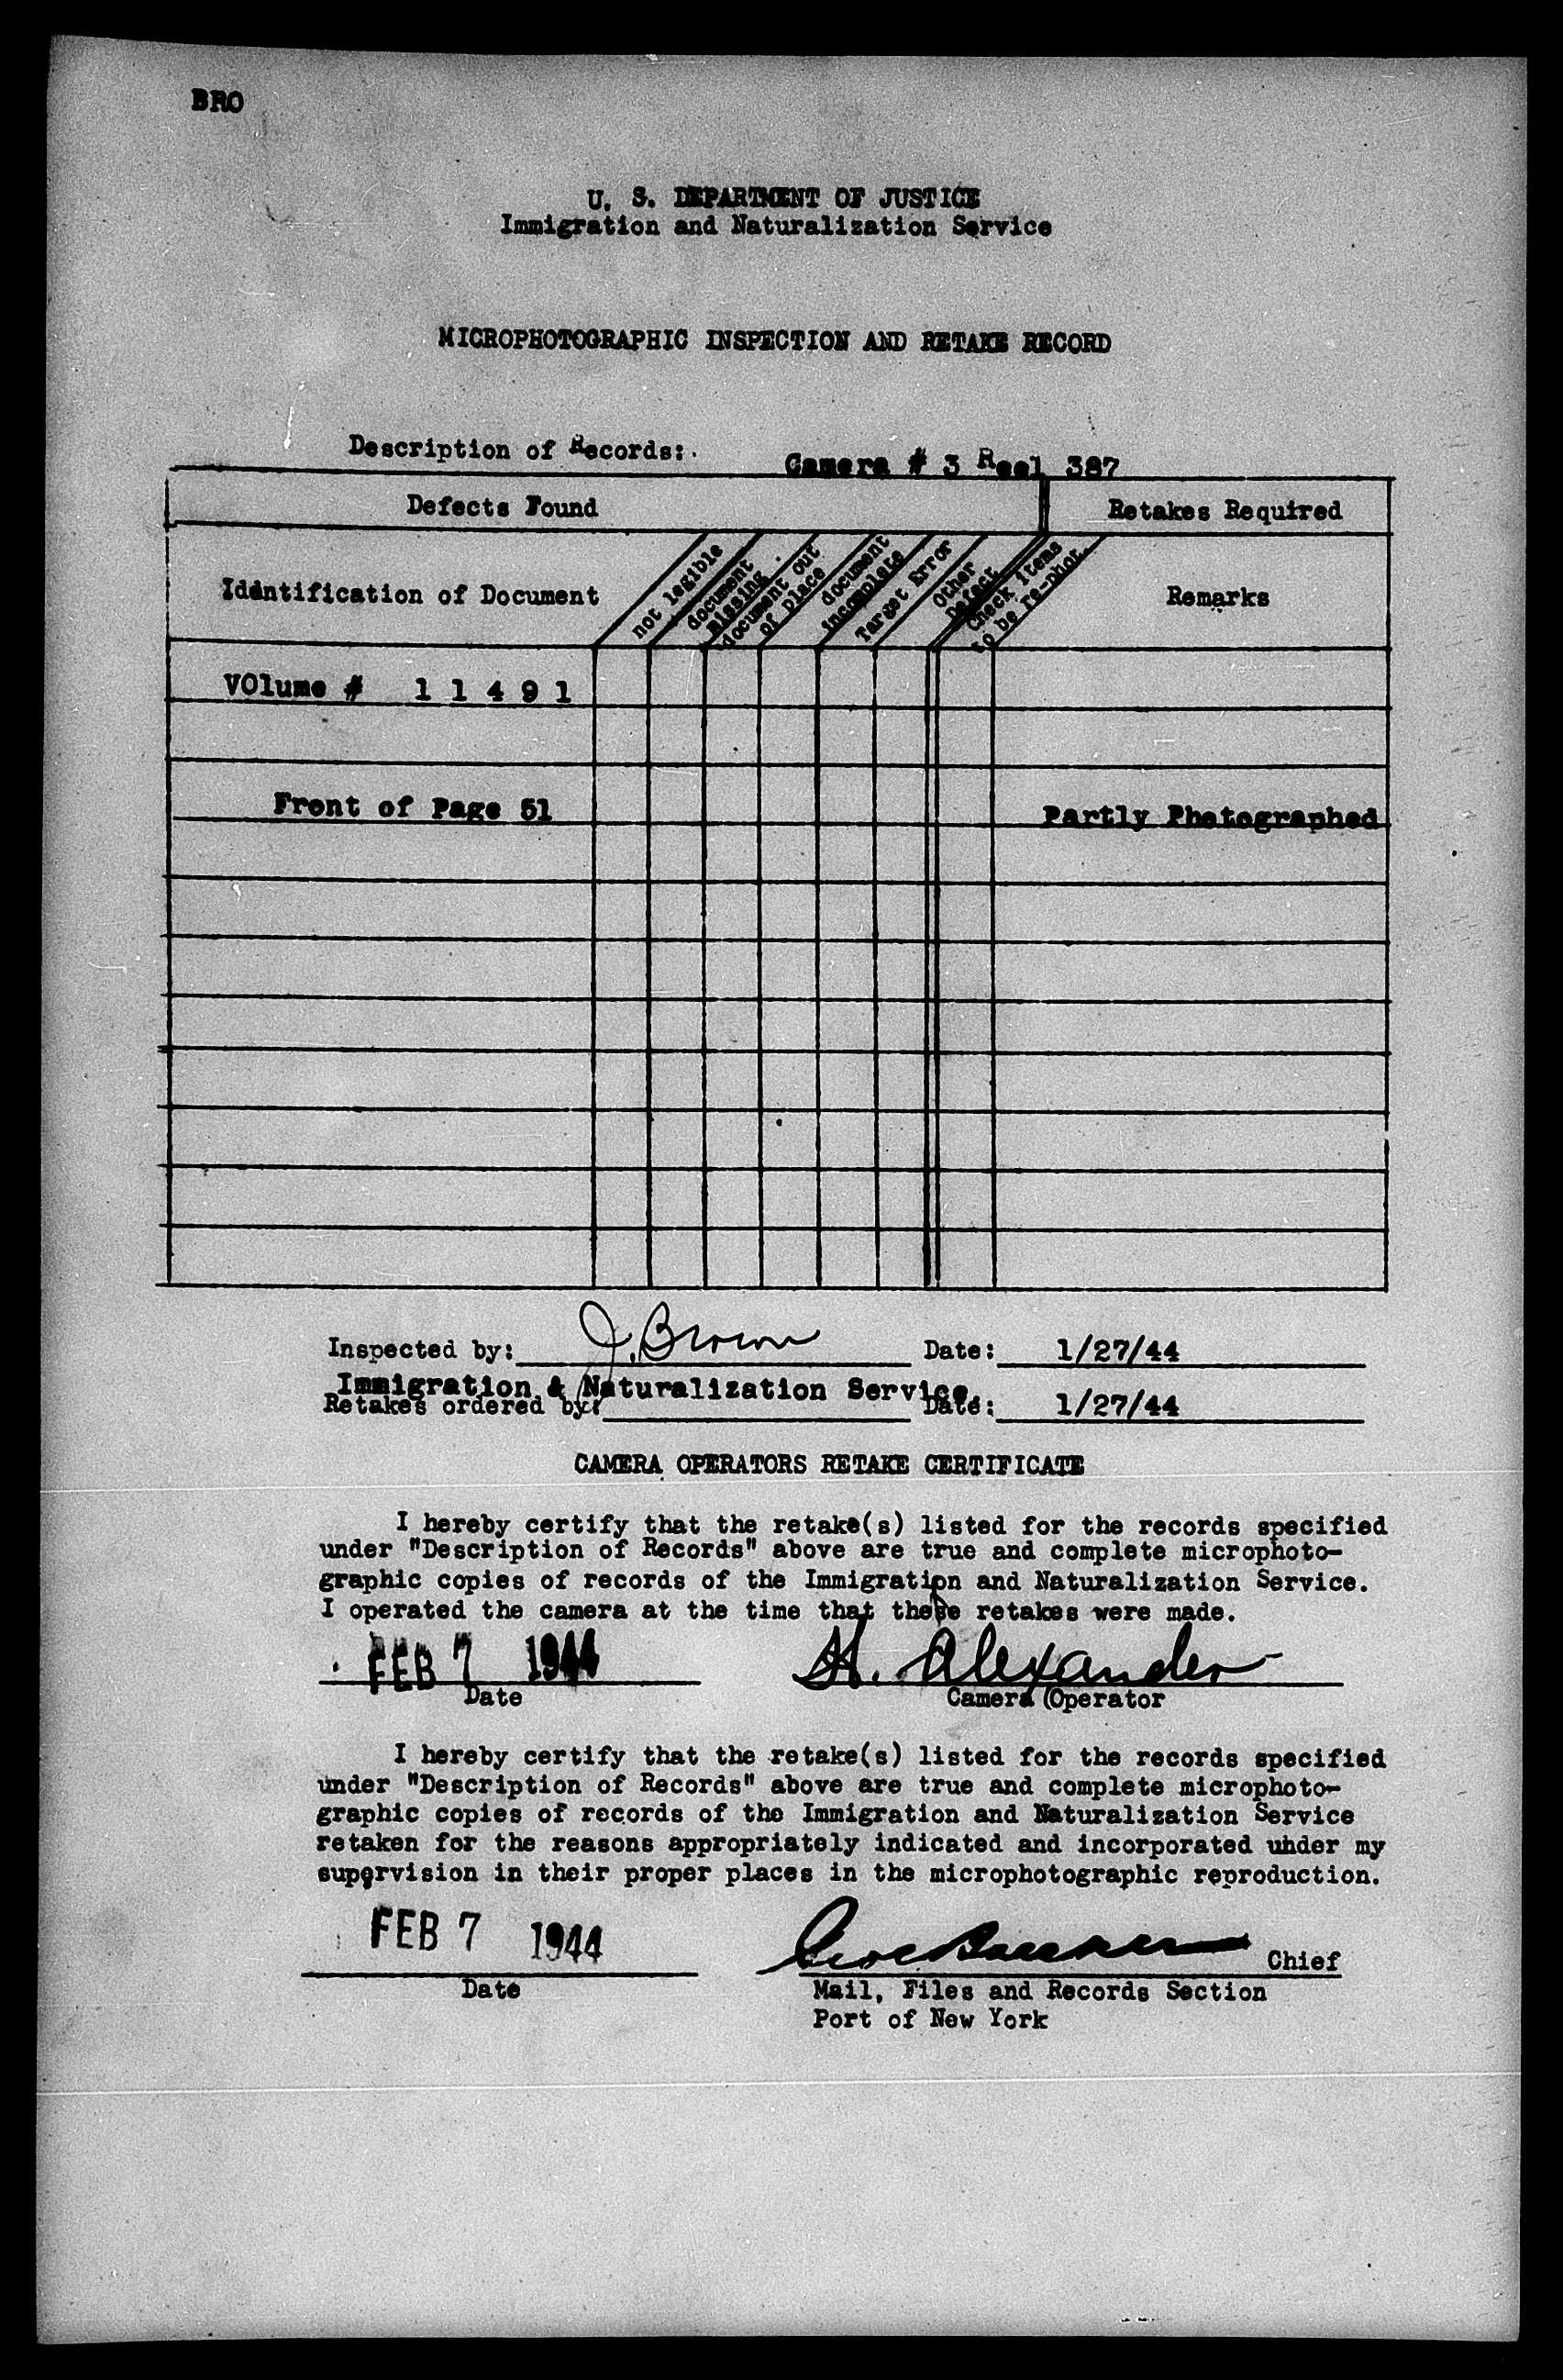 BRO
U. S. DEPARTMENT OF JUSTICE
Immigration and Naturalization Service
MICROPHOTOGRAPHIC INSPECTION AND RETAKE RECORD
Description of Records: Camera # 3 Reel 387
Defects Found
Retakes Required
Identification of Document
not legible
document
missing
document out
of place
document
incomplete
Target Error
Other
Defect
Check items
to be re-phot.
Remarks
VOlume # 1 1 4 9 1
Front of Page 51
Partly Photographed
Inspected by: J. Brown Date: 1/27/44
Immigration & Naturalization Service.
Retakes ordered by: Date: 1/27/44
CAMERA OPERATORS RETAKE CERTIFICATE
I hereby certify that the retake(s) listed for the records specified
under "Description of Records" above are true and complete microphoto-
graphic copies of records of the Immigration and Naturalization Service.
I operated the camera at the time that these retakes were made.
FEB 7 1944 H. Alexander
Date Camera Operator
I hereby certify that the retake(s) listed for the records specified
under "Description of Records" above are true and complete microphoto-
graphic copies of records of the Immigration and Naturalization Service
retaken for the reasons appropriately indicated and incorporated under my
supervision in their proper places in the microphotographic reproduction.
FEB 7 1944 Chief
Date Mail, Files and Records Section
Port of New York